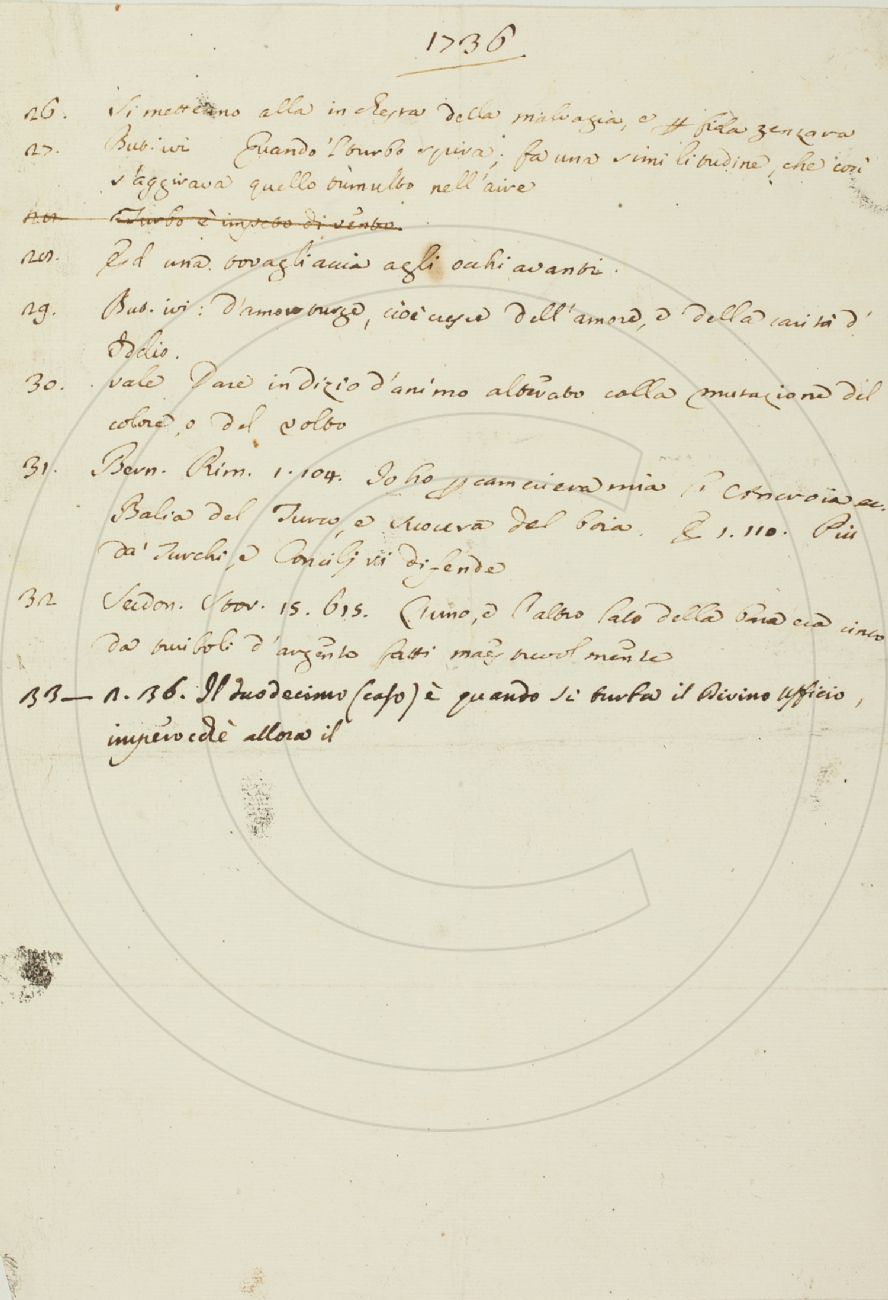 1736
26. si mettevano alla inchiesta della malvagia, e fida zenzara
27. But. ivi Quando 'l turbo spira; fa una similitudine, che così
s'aggirava quello tumulto nell'aire
28 Turbo è impeto di vento.
28. Ed una tovagliaccia agli occhi avanti.
29. But. ivi: d'amor turge, cioè cresce dell'amore, e della carità d'
Iddio.
30. vale Dare indizio d'animo alterato colla mutazione del
colore, o del volto
31. Bern. Rim. 1. 104. Io ho cameriera mia l'Ancroia ec.
Balia del Turco, e suocera del boia. E 1. 110. Più
da' Turchi, e Concilj vi difende
32 Serdon. Stor. 15. 615. L'uno, e l'altro lato della bara era cinto
da turiboli d'argento fatti maestrevolmente
33— n. 36. Il duodecimo (caso) è quando si turba il Divino Ufficio,
imperocchè allora il